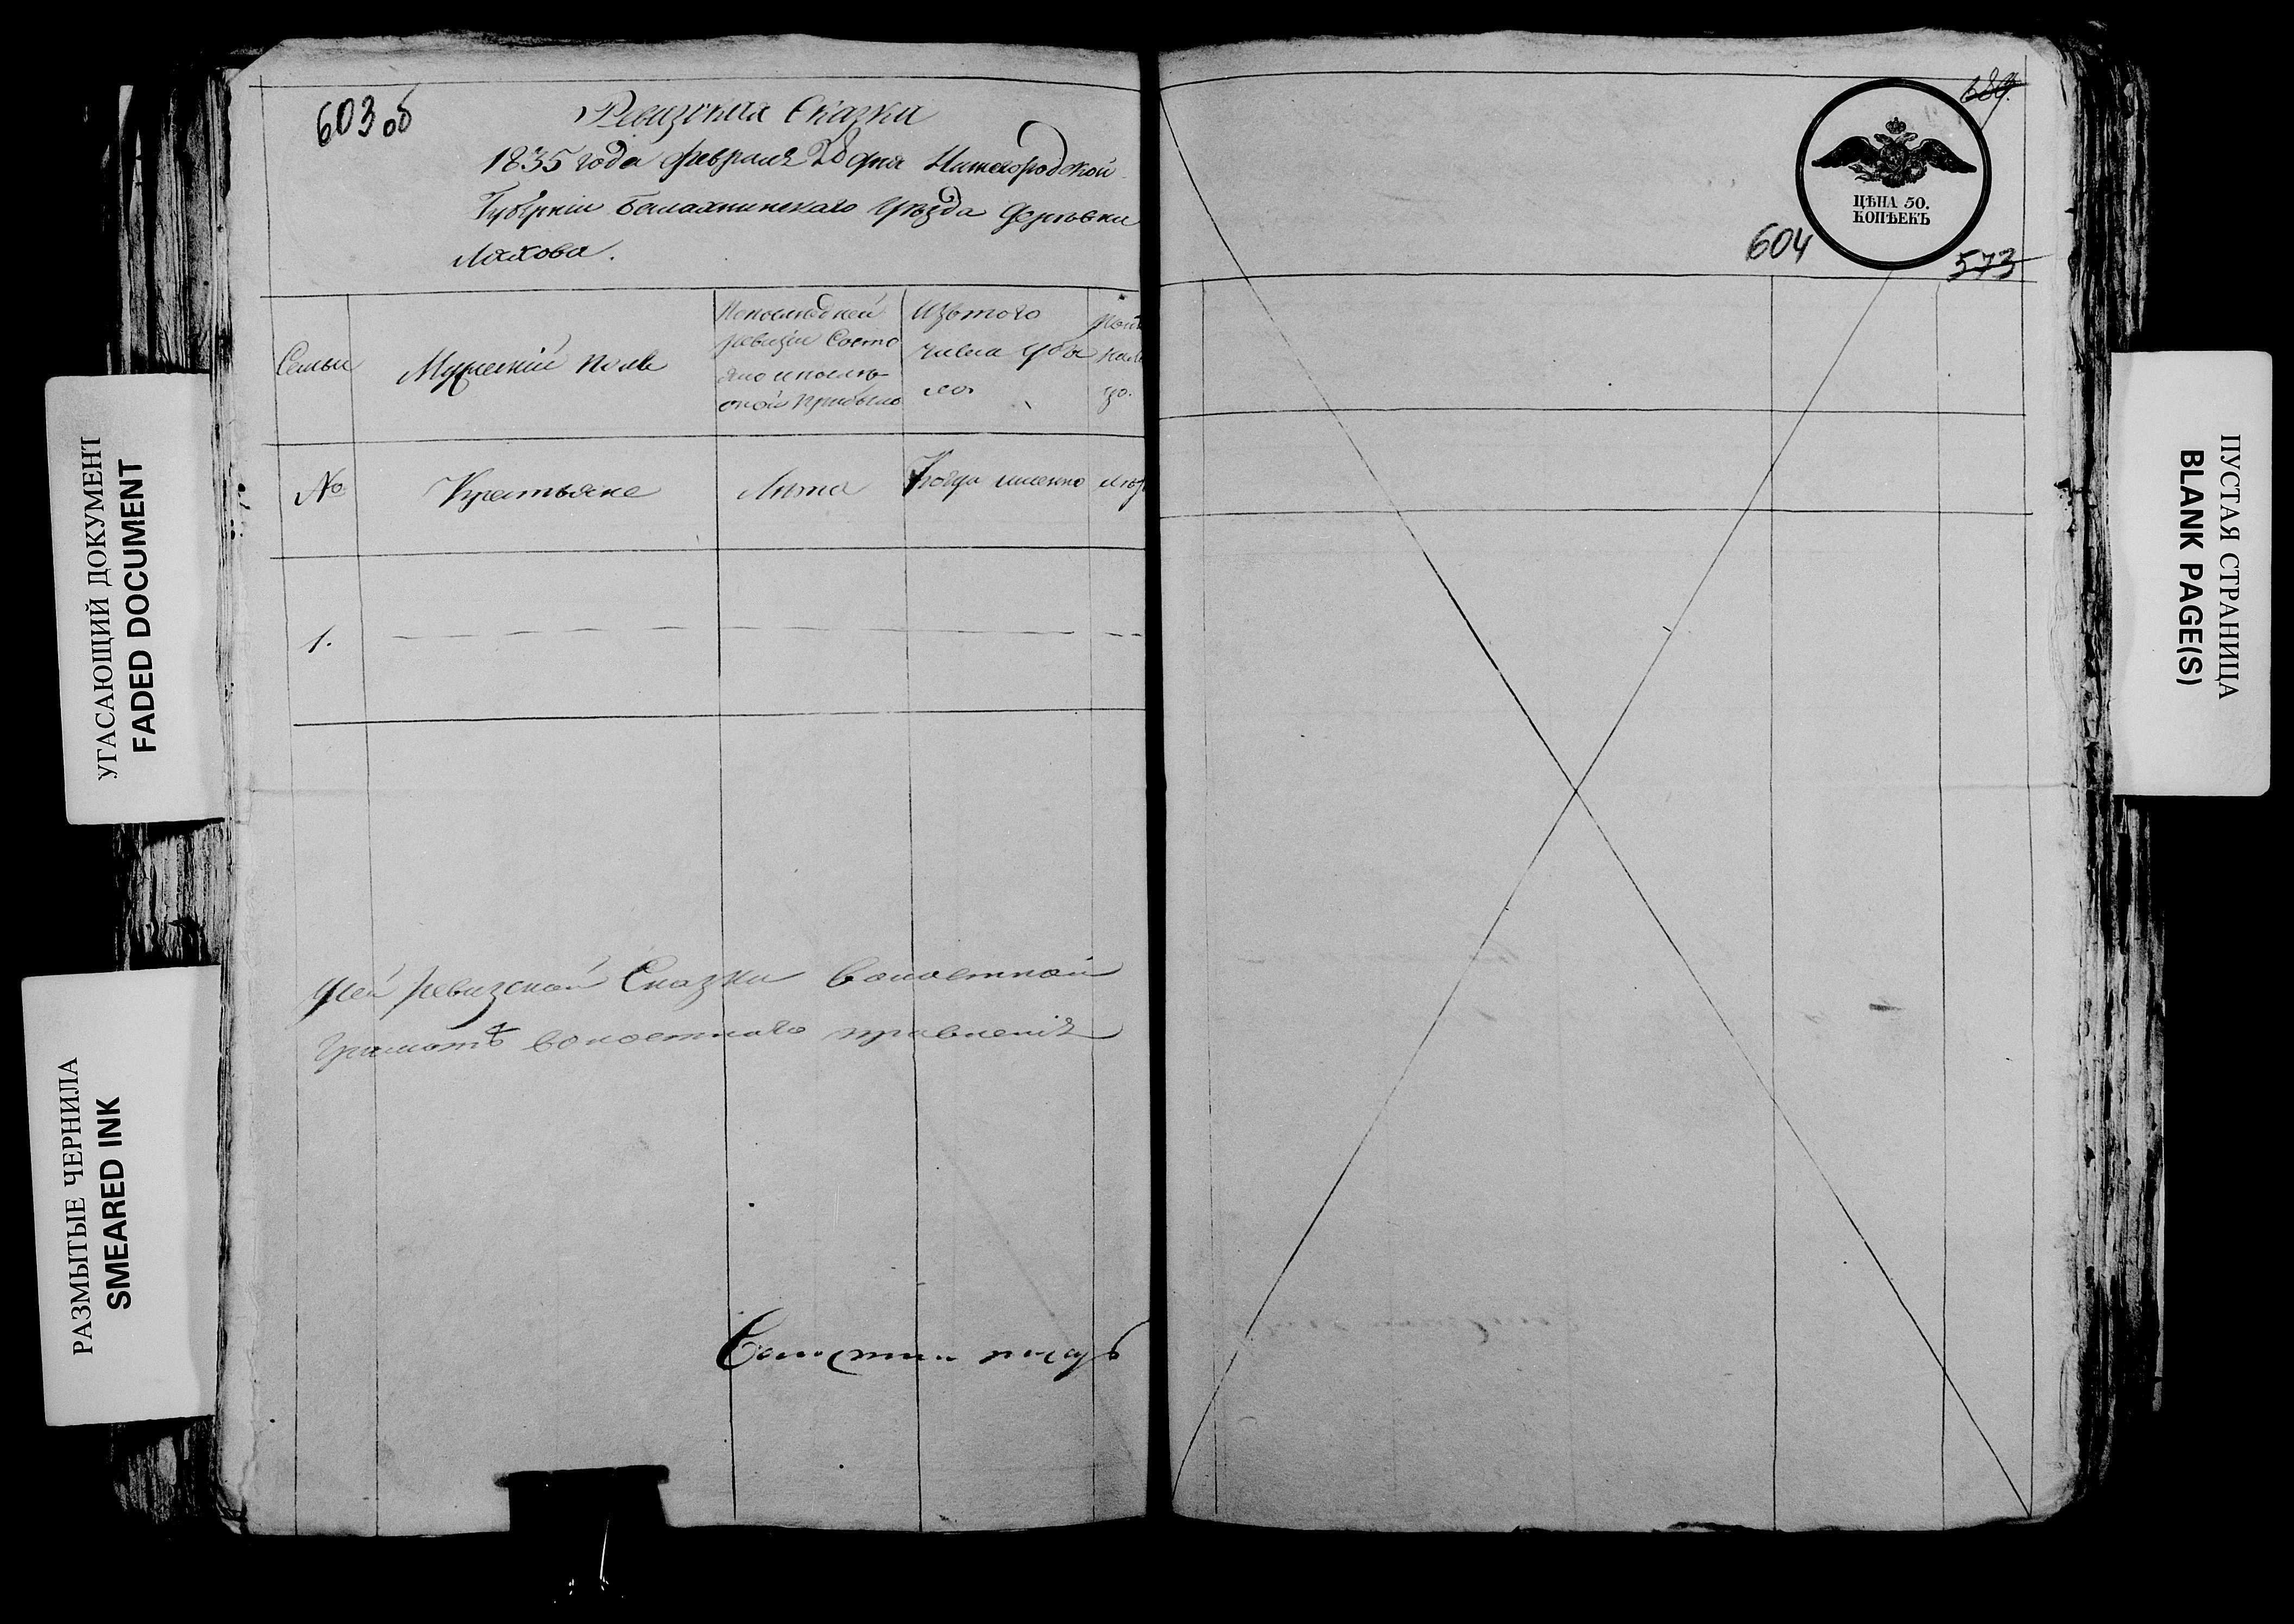 603 об
Ревизская Сказка
1835 года февраля 28 дня Нижегородской
Губерніи Балахнинскаго Уѣзда деревни
Ляхова.
Семьи
Мужескій полъ
Попослѣдней
ревизіи Состо
яло ипослѣ
оной прибыло
Изътого
числа убы
ло
№
Крестьяне
Лѣта
Когда именно
1.
Ксей ревизской Сказки волостной
Грамотѣ волостнаго правленія
689.
ЦѢНА 50.
КОПѢЕКЪ
604
573
УГАСАЮЩИЙ ДОКУМЕНТ
FADED DOCUMENT
РАЗМЫТЫЕ ЧЕРНИЛА
SMEARED INK
ПУСТАЯ СТРАНИЦА
BLANK PAGE(S)